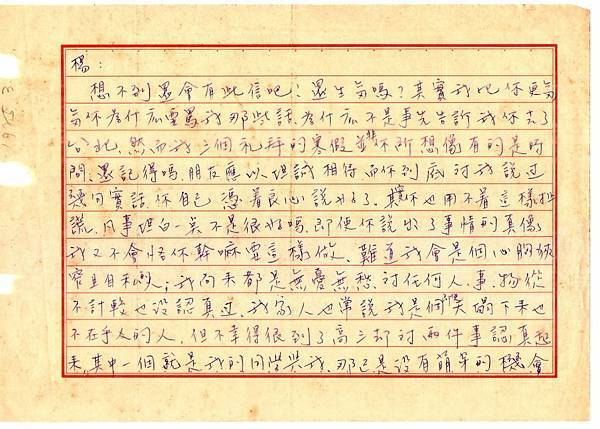 楊：
想不到還會有此信吧？還生氣嗎？其實我比你更氣
氣你為什么要罵我那些話，為什么不是事先告訴我你去了
台北，然而我三個礼拜的寒假並非你所想像有的是時
間，還記得嗎，朋友應以坦誠相待而你到底对我說过
幾句實話，你自己憑着良心說好了，其实也用不着這樣扯
謊，凡事坦白一点不是很好嗎，即使你說出了事情的真像
我又不會怪你幹嘛要這樣做，難道我會是個心胸狹
窄且自私的人；我向来都是無憂無愁，对任何人、事、物從
不計較也没認真过，我家人也常說我是個天塌下来也
不在乎的人，但不幸得很到了高三却对兩件事認真起
来，其中一個就是我的同學與我，那已是没有萌芽的機會